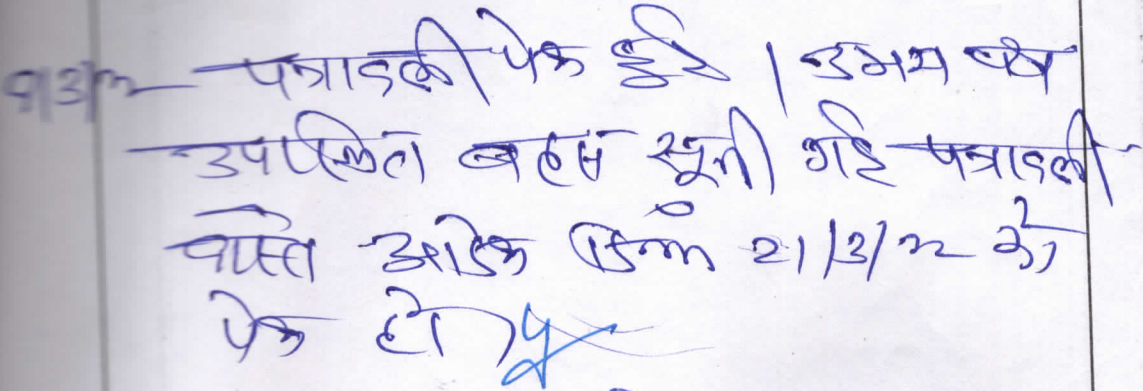 9/3/22 पत्रावली पेश हुई। उभय पक्ष
उपस्थित बहस सुनी गई पत्रावली
वास्ते आदेश दिनांक 21/3/22 को
पेश हो